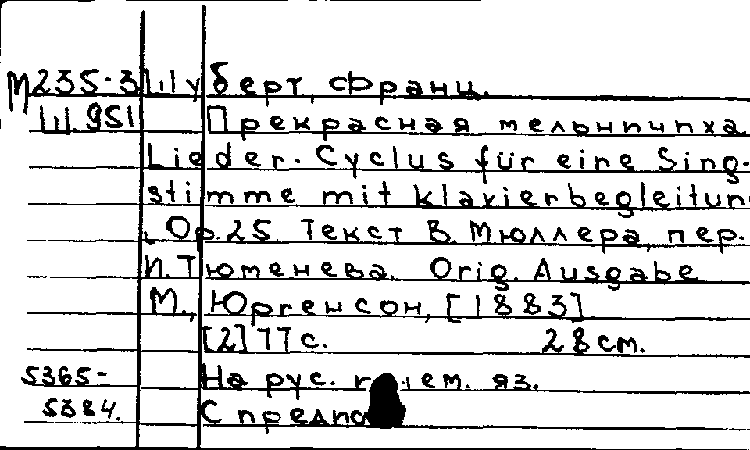 М235-3 Шуберт, Франц.
Ш.951 Прекрасная мельничиха
Lieder-Cyclus für eine Sing-
stimme mit Klavierbegleitun
Op.25 Текст В. Мюллера, пер.
И. Тюменева. Orig. Ausgabe
М., Юргенсон, [1883]
[2]77 с. 28 см.
5365- На рус. яз.
5384. С